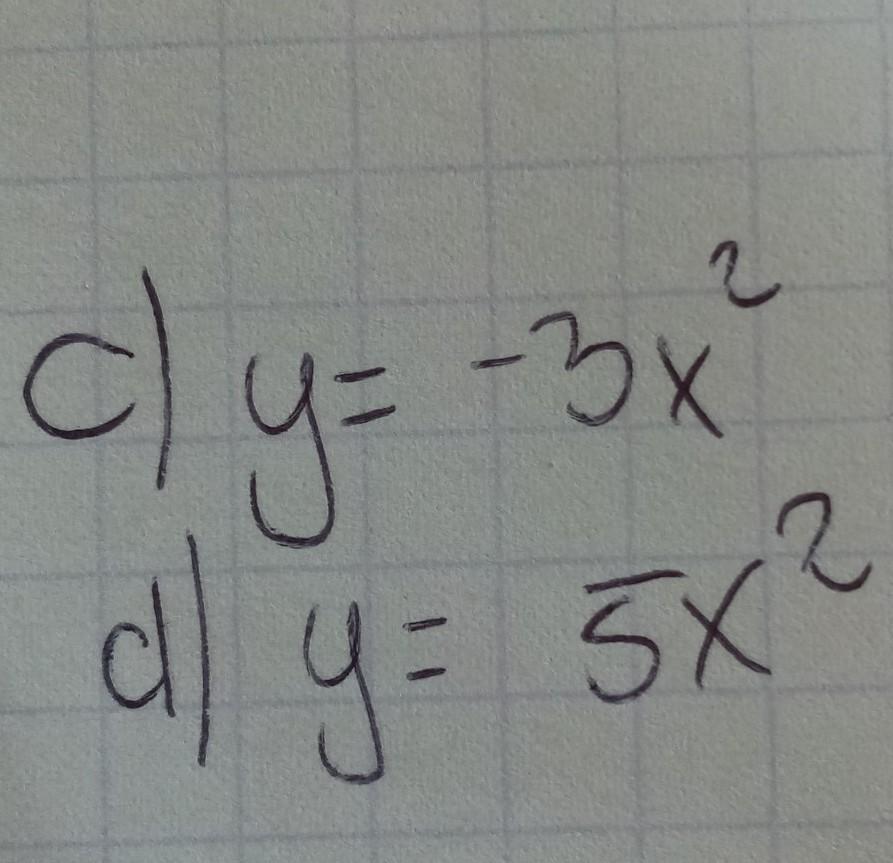 c) y = -3x²
d) y = 5x²